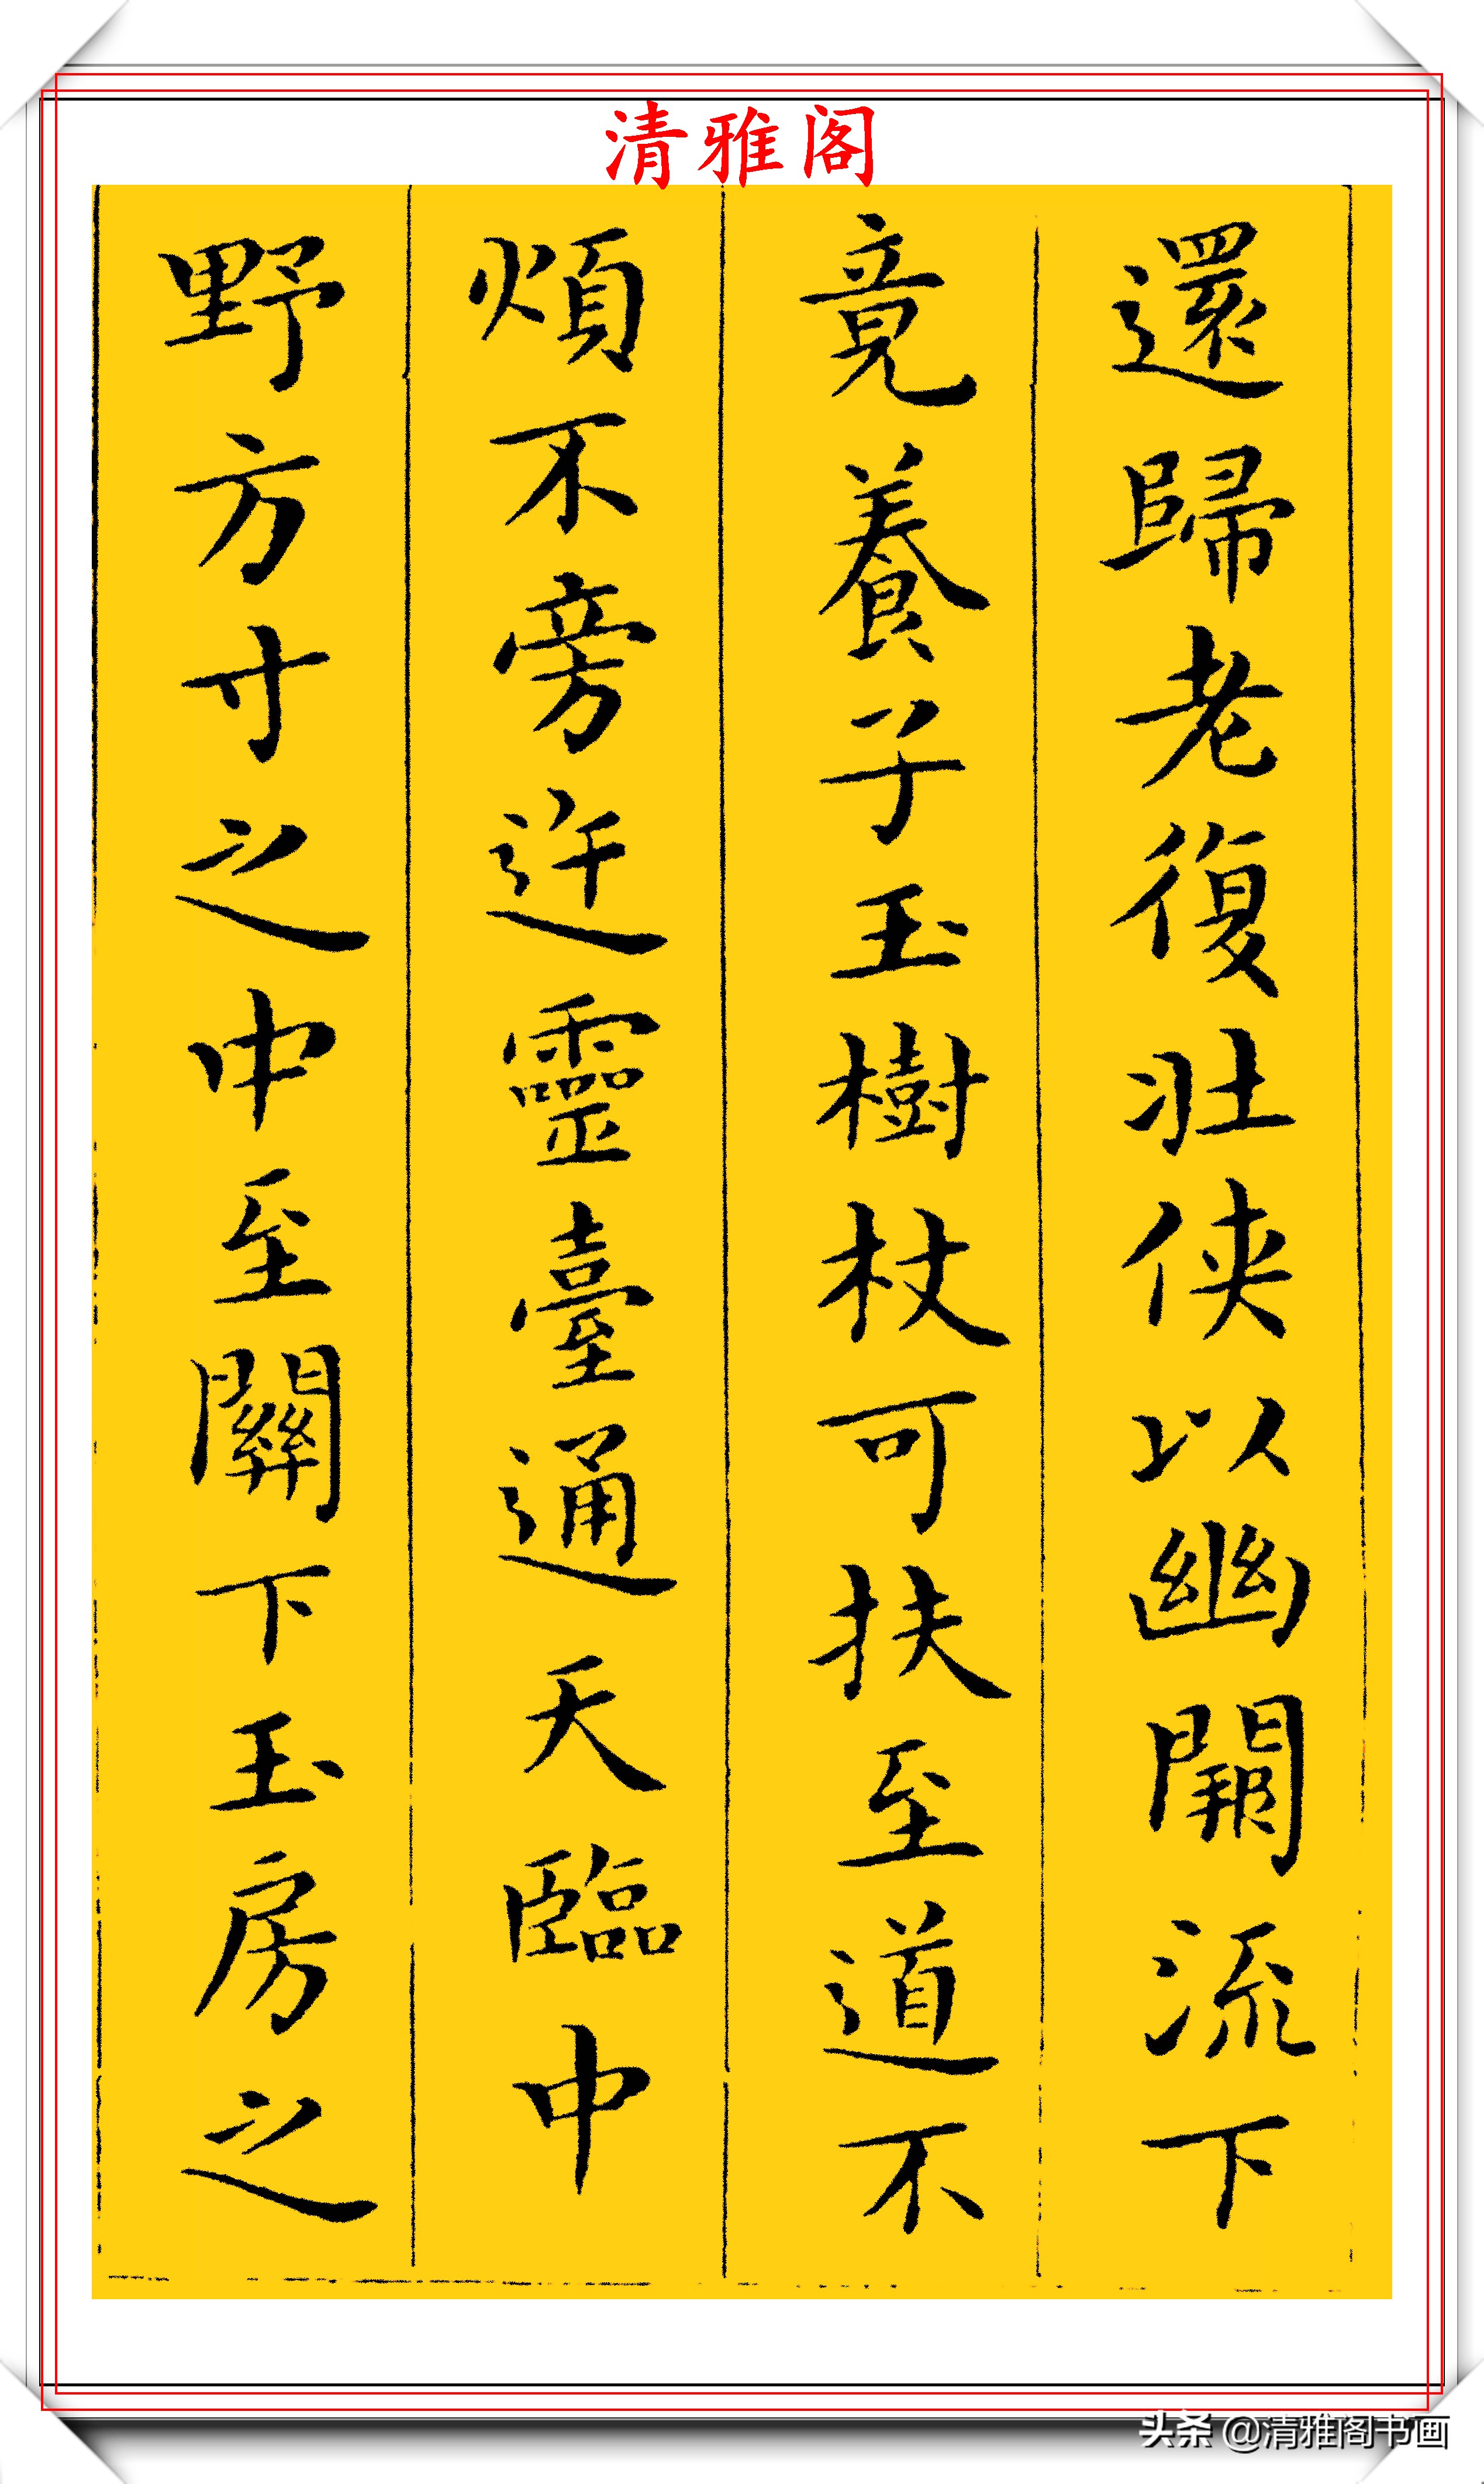 清雅阁
還歸老復壯俠以幽闕流下
竟養子玉樹杖可扶至道不
煩不旁迕靈臺通天臨中
野方寸之中至關下玉房之
头条 @清雅阁书画